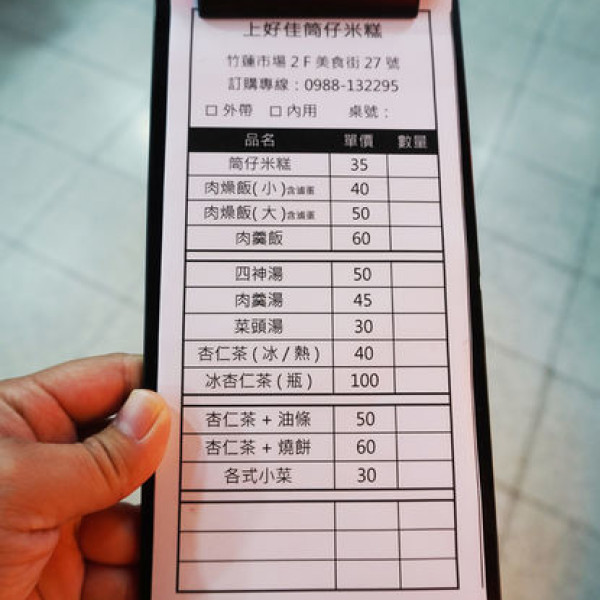 上好佳筒仔米糕
竹蓮市場2F美食街27號
訂購專線：0988-132295
□外帶 □內用 桌號：
品名 單價 數量
筒仔米糕 35
肉燥飯(小)含滷蛋 40
肉燥飯(大)含滷蛋 50
肉羹飯 60
四神湯 50
肉羹湯 45
菜頭湯 30
杏仁茶(冰/熱) 40
冰杏仁茶(瓶) 100
杏仁茶+油條 50
杏仁茶+燒餅 60
各式小菜 30